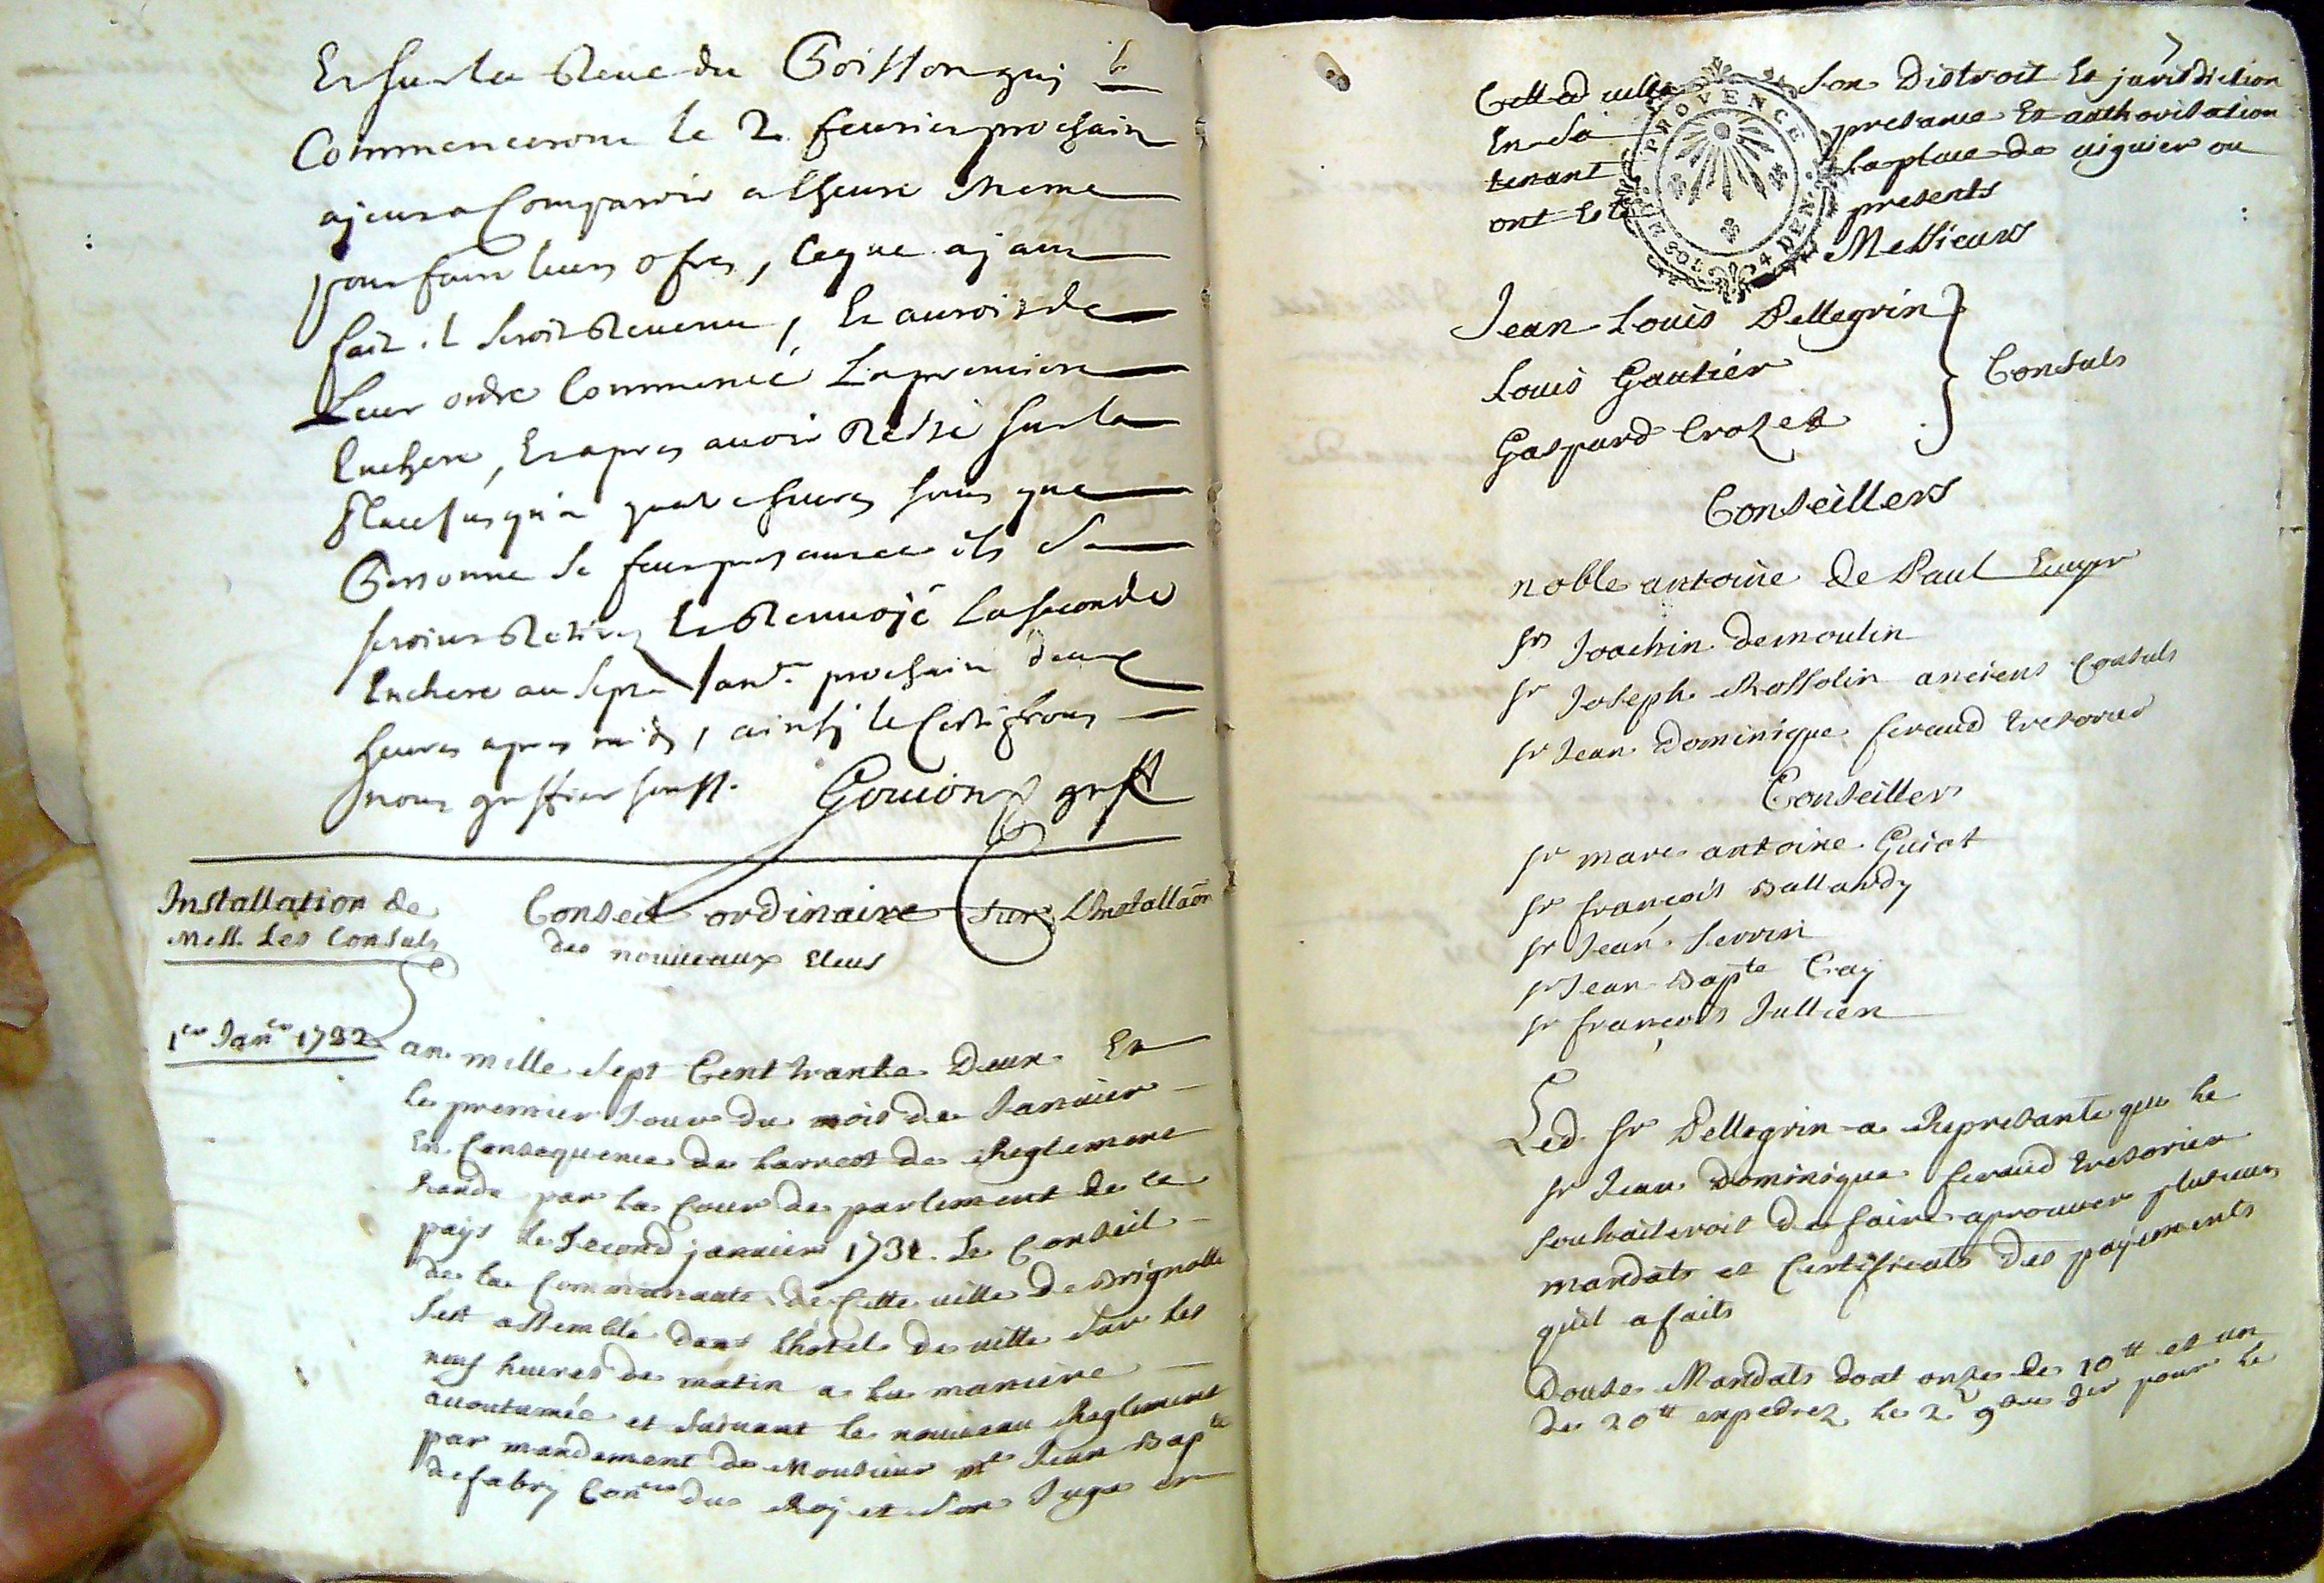 Et sur la Reue du Poisson qui
Commencerons le 2 feurier prochain
a comparoir a l'heure meme
pour faire leurs ofres, ce que ajant
fait il seroit Reuenu, Et auroit de
Leur ordre Commencé La premiere
Enchere, Et apres auoir Resté sur la
Place jusqu'a quatre heures sans que
Personne se feut presantee ils se
seroint Retirez Et Renuojé la seconde
Enchere au sept janr. prochain deux
heures apres midy, ainsy le Certifions
nous greffier souss. Gouion greff
Installation de
Mess. Les Consuls
1er Janer 1732
Conseil ordinaire sur L'Installaõn
des nouueaux Eleus
an mille sept Cent trante Deux Et
le premier Jour du mois de Januier
En Consequence de Larrest de Reglement
Randu par la Cour de parlement de ce
pays le second januier 1731. Le Conseil
de la Communauté de Cette uille de Brignolle
sest assemblé dans Lhotel de uille sur les
neuf heures de matin a la maniere
accoutumée et suiuant le nouueau Reglement
par mandement de Monsieur Me Jean Bapte
de fabry Coner du Roj et son Juge en
7
Cette d uille son Distroit Et jurisdiction
En sa presance Et authorisation
tenant La place de uiguier ou
ont Esté presents
Messieurs
PROVENCE
4 DEN.
Jean Louis Pellegrin
Louis Gautiér
Gaspard Crozet
Consuls
Conseillers
noble antoine de Paul Ecuyer
sr Joachin demoulin
sr Joseph Rossolin anciens Consuls
sr Jean Dominique feraud tresorier
Conseillers
sr marc antoine Guiot
sr françois Ballardy
sr Jean Serrin
sr Jean Bapte Cray
sr françois Jullien
Led. sr Pellegrin a Represanté que le
sr Jean Dominique feraud tresorier
souhaiteroit de faire aprouuer plusieurs
mandats et Certificats des payements
quil a faits
Douse Mandats dont onze de 10tt et un
de 20tt expediez le 2 9bre der pour le